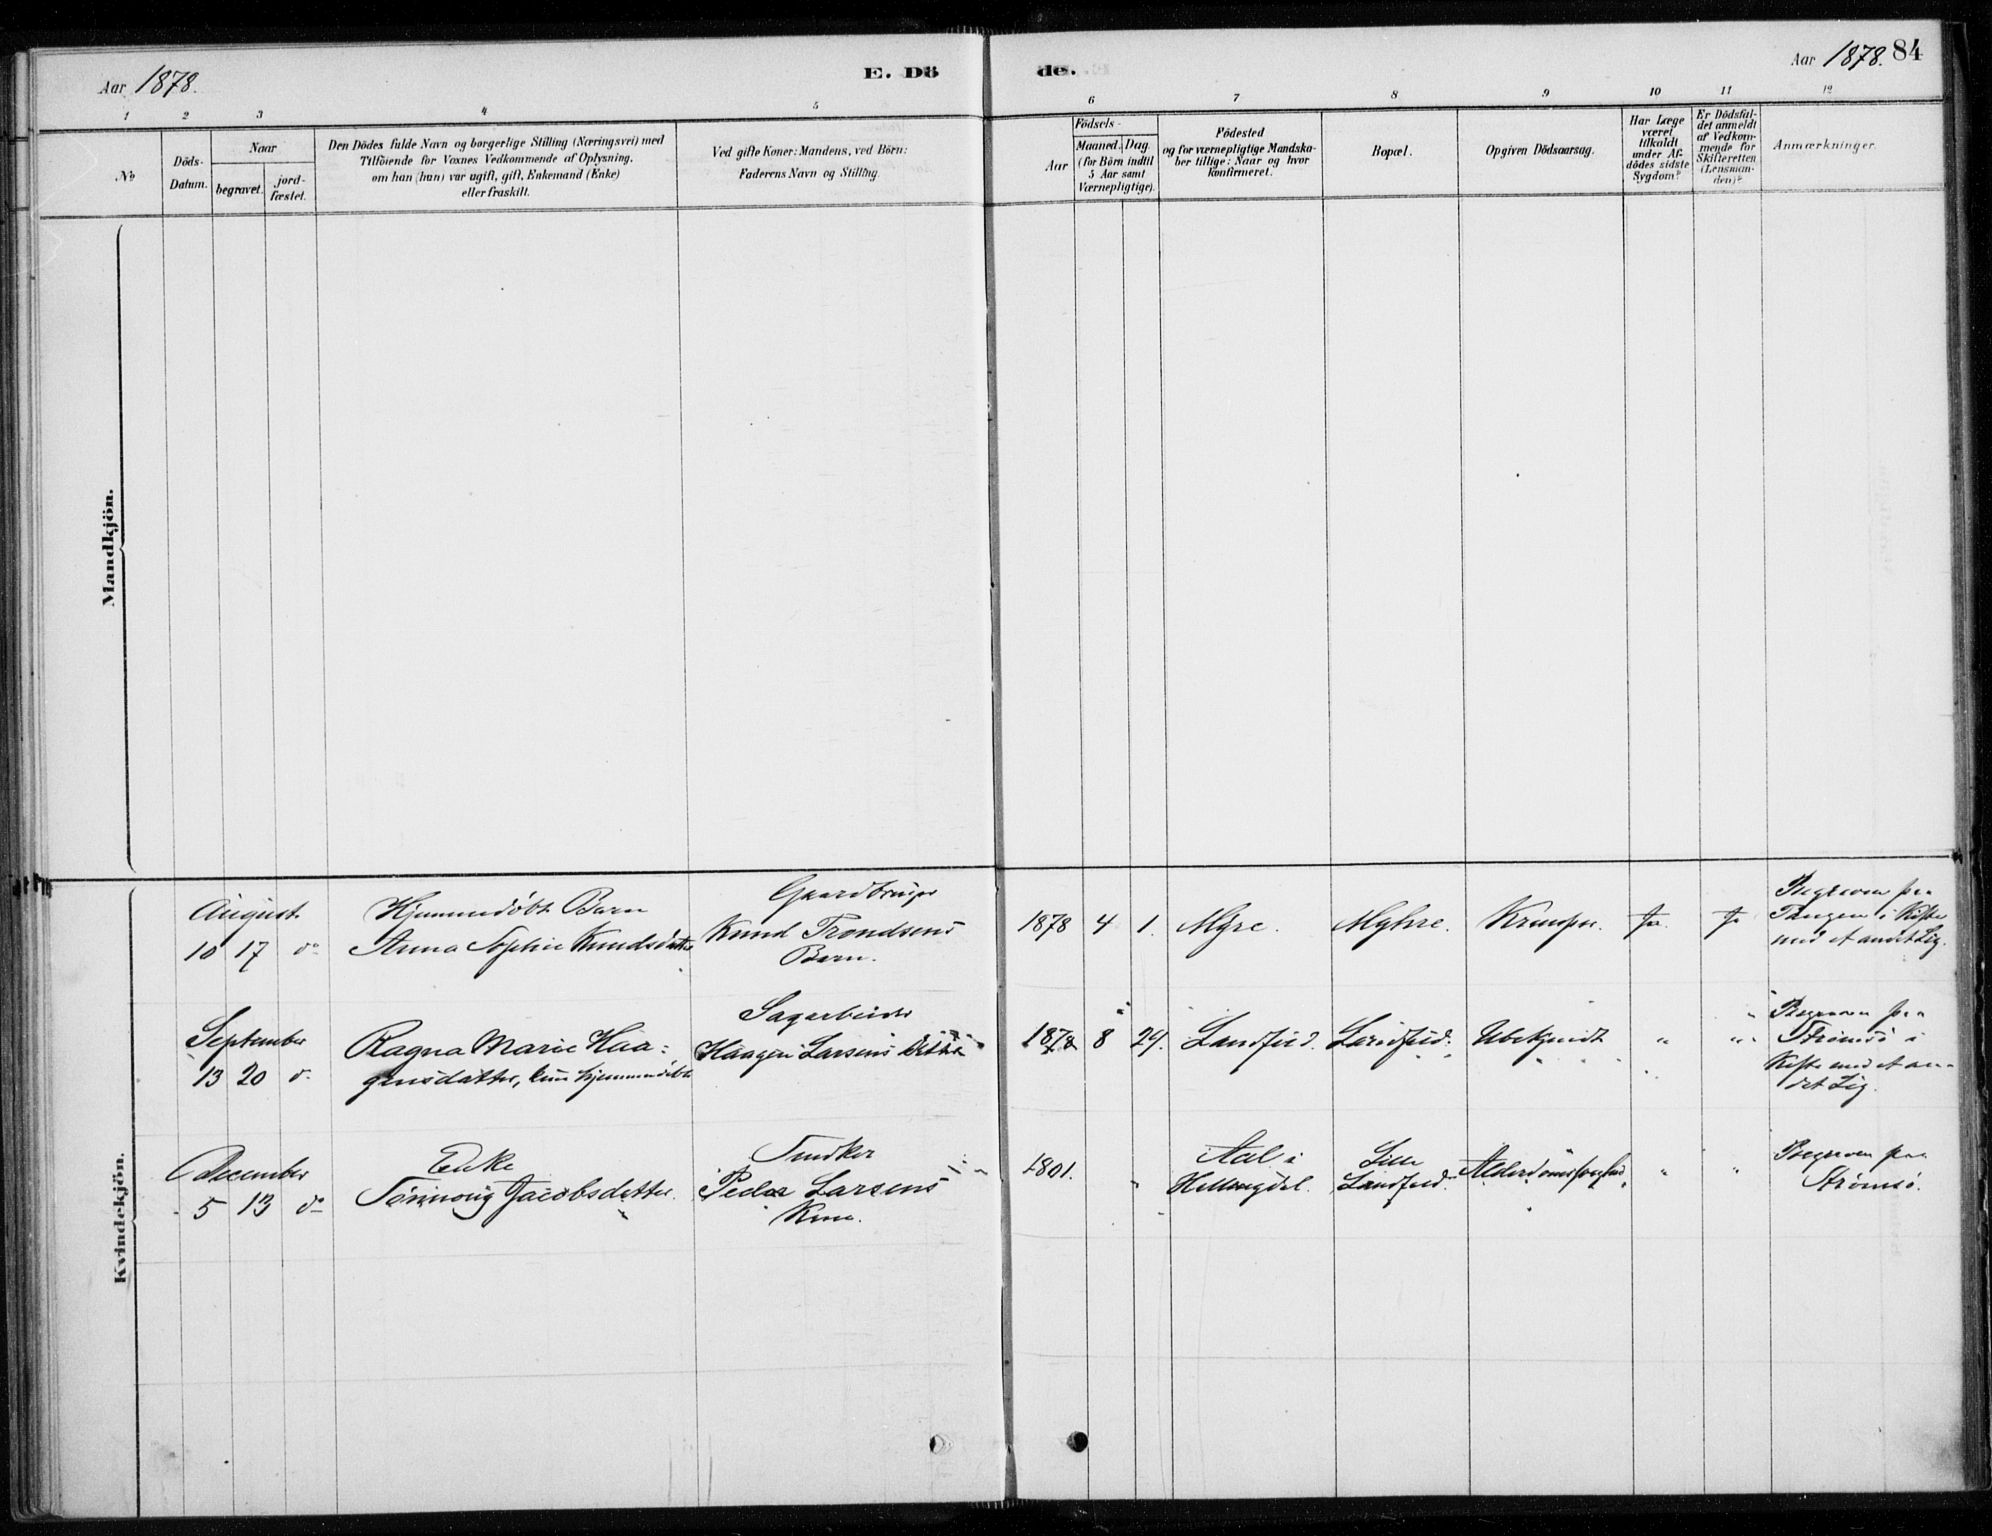 Aar 1878.
E. Dö
de.
Aar 1878. 84
1 2 3 4 5 6 7 8 9 10 11 12
№
Döds-
Datum.
Naar
begravet.
jord-
fæstet.
Den Dödes fulde Navn og borgerlige Stilling (Næringsvei) med
Tilföiende for Voxnes Vedkommende af Oplysning,
om han (hun) var ugift, gift, Enkemand (Enke)
eller fraskilt.
Ved gifte Koner: Mandens, ved Börn:
Faderens Navn og Stilling.
Födsels-
Aar
Maaned.
Dag.
(for Börn indtil
5 Aar samt
Værnepligtige).
Födested
og for værnepligtige Mandska-
ber tillige: Naar og hvor
konfirmeret.
Bopæl.
Opgiven Dödsaarsag.
Har Læge
været
tilkaldt
under Af-
dödes sidste
Sygdom?
Er Dödsfal-
det anmeldt
af Vedkom-
mende for
Skifteretten
(Lensman-
den)?
Anmærkninger.
Mandkjön.
Kvindekjön.
August
10 17 do
Hjemmedøbt Barn
Anna Sophie Knudsdatter
Gaardbruger
Knud Trondsens
Barn.
1878 4 1. Myre. Myhre. Krampe. Ja. Ja
Begraven paa
Tangen i Kiste
med et andet Lig.
September
13 20 do
Ragna Marie Haa-
gensdatter, kun hjemmedøbt
Sagarbeider
Haagen Larsens Datter
1878 8 29. Landfald. Landfald. Ubekjendt " "
Begraven paa
Strømsø i
Kiste med et an-
det Lig.
December
5 13 do
Enke
Jacobsdatter.
Snedker
Peder Larsens
Kone.
1801. "
Aal i
Hallingdal.
Lille
Landfald.
" "
Begraven paa
Strømsø.